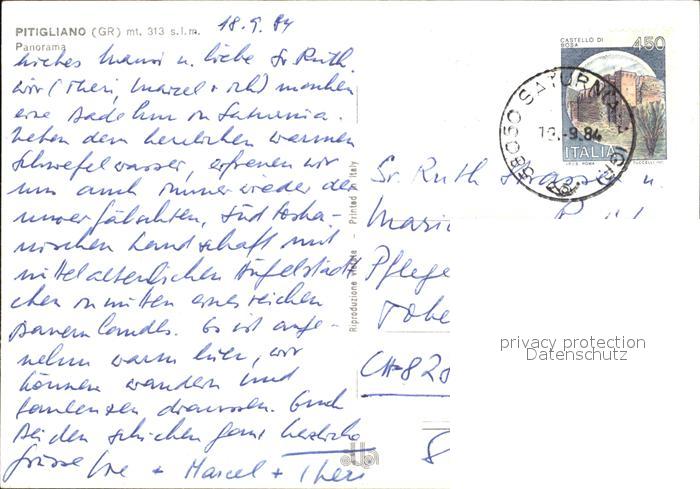 PITIGLIANO (GR) mt. 313 s.l.m. 18.9.84
Panorama
Liebes Manni u. liebe Sr Ruth
wir (Theri, Marcel + ich) machen
eine Badekur in Saturnia.
Neben dem herrlichen warmen
Schwefelwasser, erfreuen wir
uns auch immer wieder der
unverfälschten, südtoska-
nischen Landschaft mit
mittelalterlichen Hügelstädt
chen inmitten eines reichen
Bauernlandes. Es ist ange-
nehm warm hier, wir
können wandern und
faulenzen draussen. Euch
beiden schicken ganz herzliche
Grüsse + Marcel + Theri
Riproduzione vietata - Printed in Italy
CASTELLO DI
BOSA
450
ITALIA
I.P.Z.S. ROMA
58050 SATURNIA (GR)
-9.84
Sr. Ruth u.
Mari
Pflege
CH-820
8
privacy protection
Datenschutz